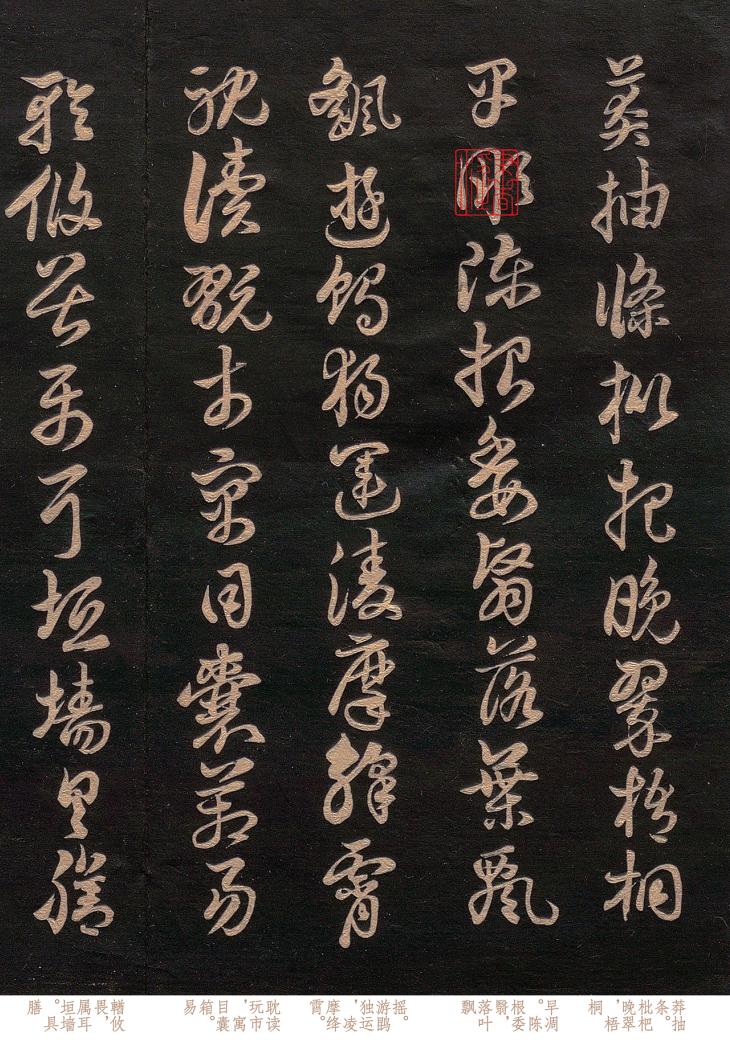 莽抽條枇杷晚翠梧桐
早彫陳根委翳落葉飄
飖遊鵾獨運凌摩絳霄
耽讀翫市寓目囊箱易
輶攸畏屬耳垣墻具膳
莽抽条。枇杷晚翠,梧桐
。早凋陈根委翳,落叶飘
摇。游鹍独运,凌摩绛霄。
耽读玩市,寓目囊箱。易
輶攸畏,属耳垣墙。具膳